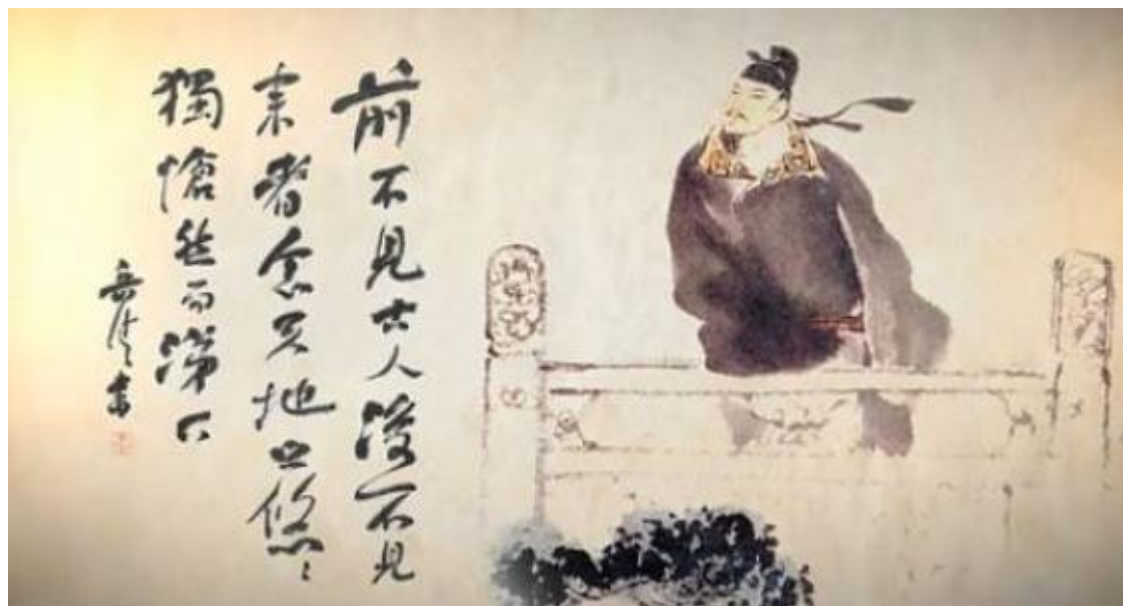 前不見古人後不見
来者念天地之悠〻
獨愴然而涕下